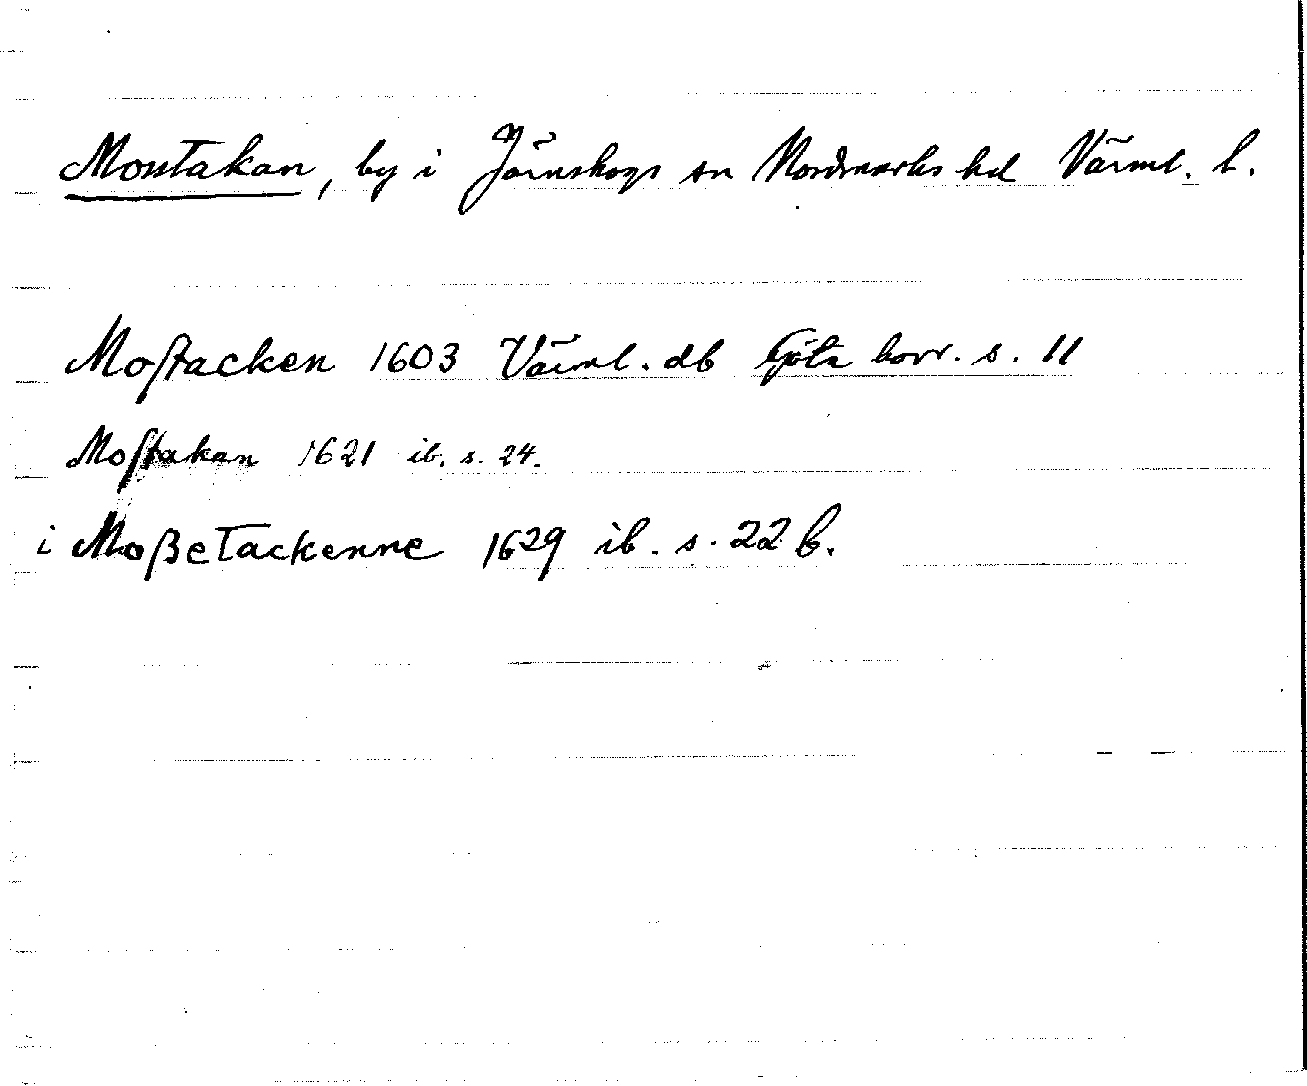 Mostakan, by i Järnskogs sn Nordmarks hd Värml. l.
Mostacken 1603 Värml. db Göta hovr. s. 11
Mostakan 1621 ib. s. 24.
i Moßetackenne 1629 ib. s. 22 b.